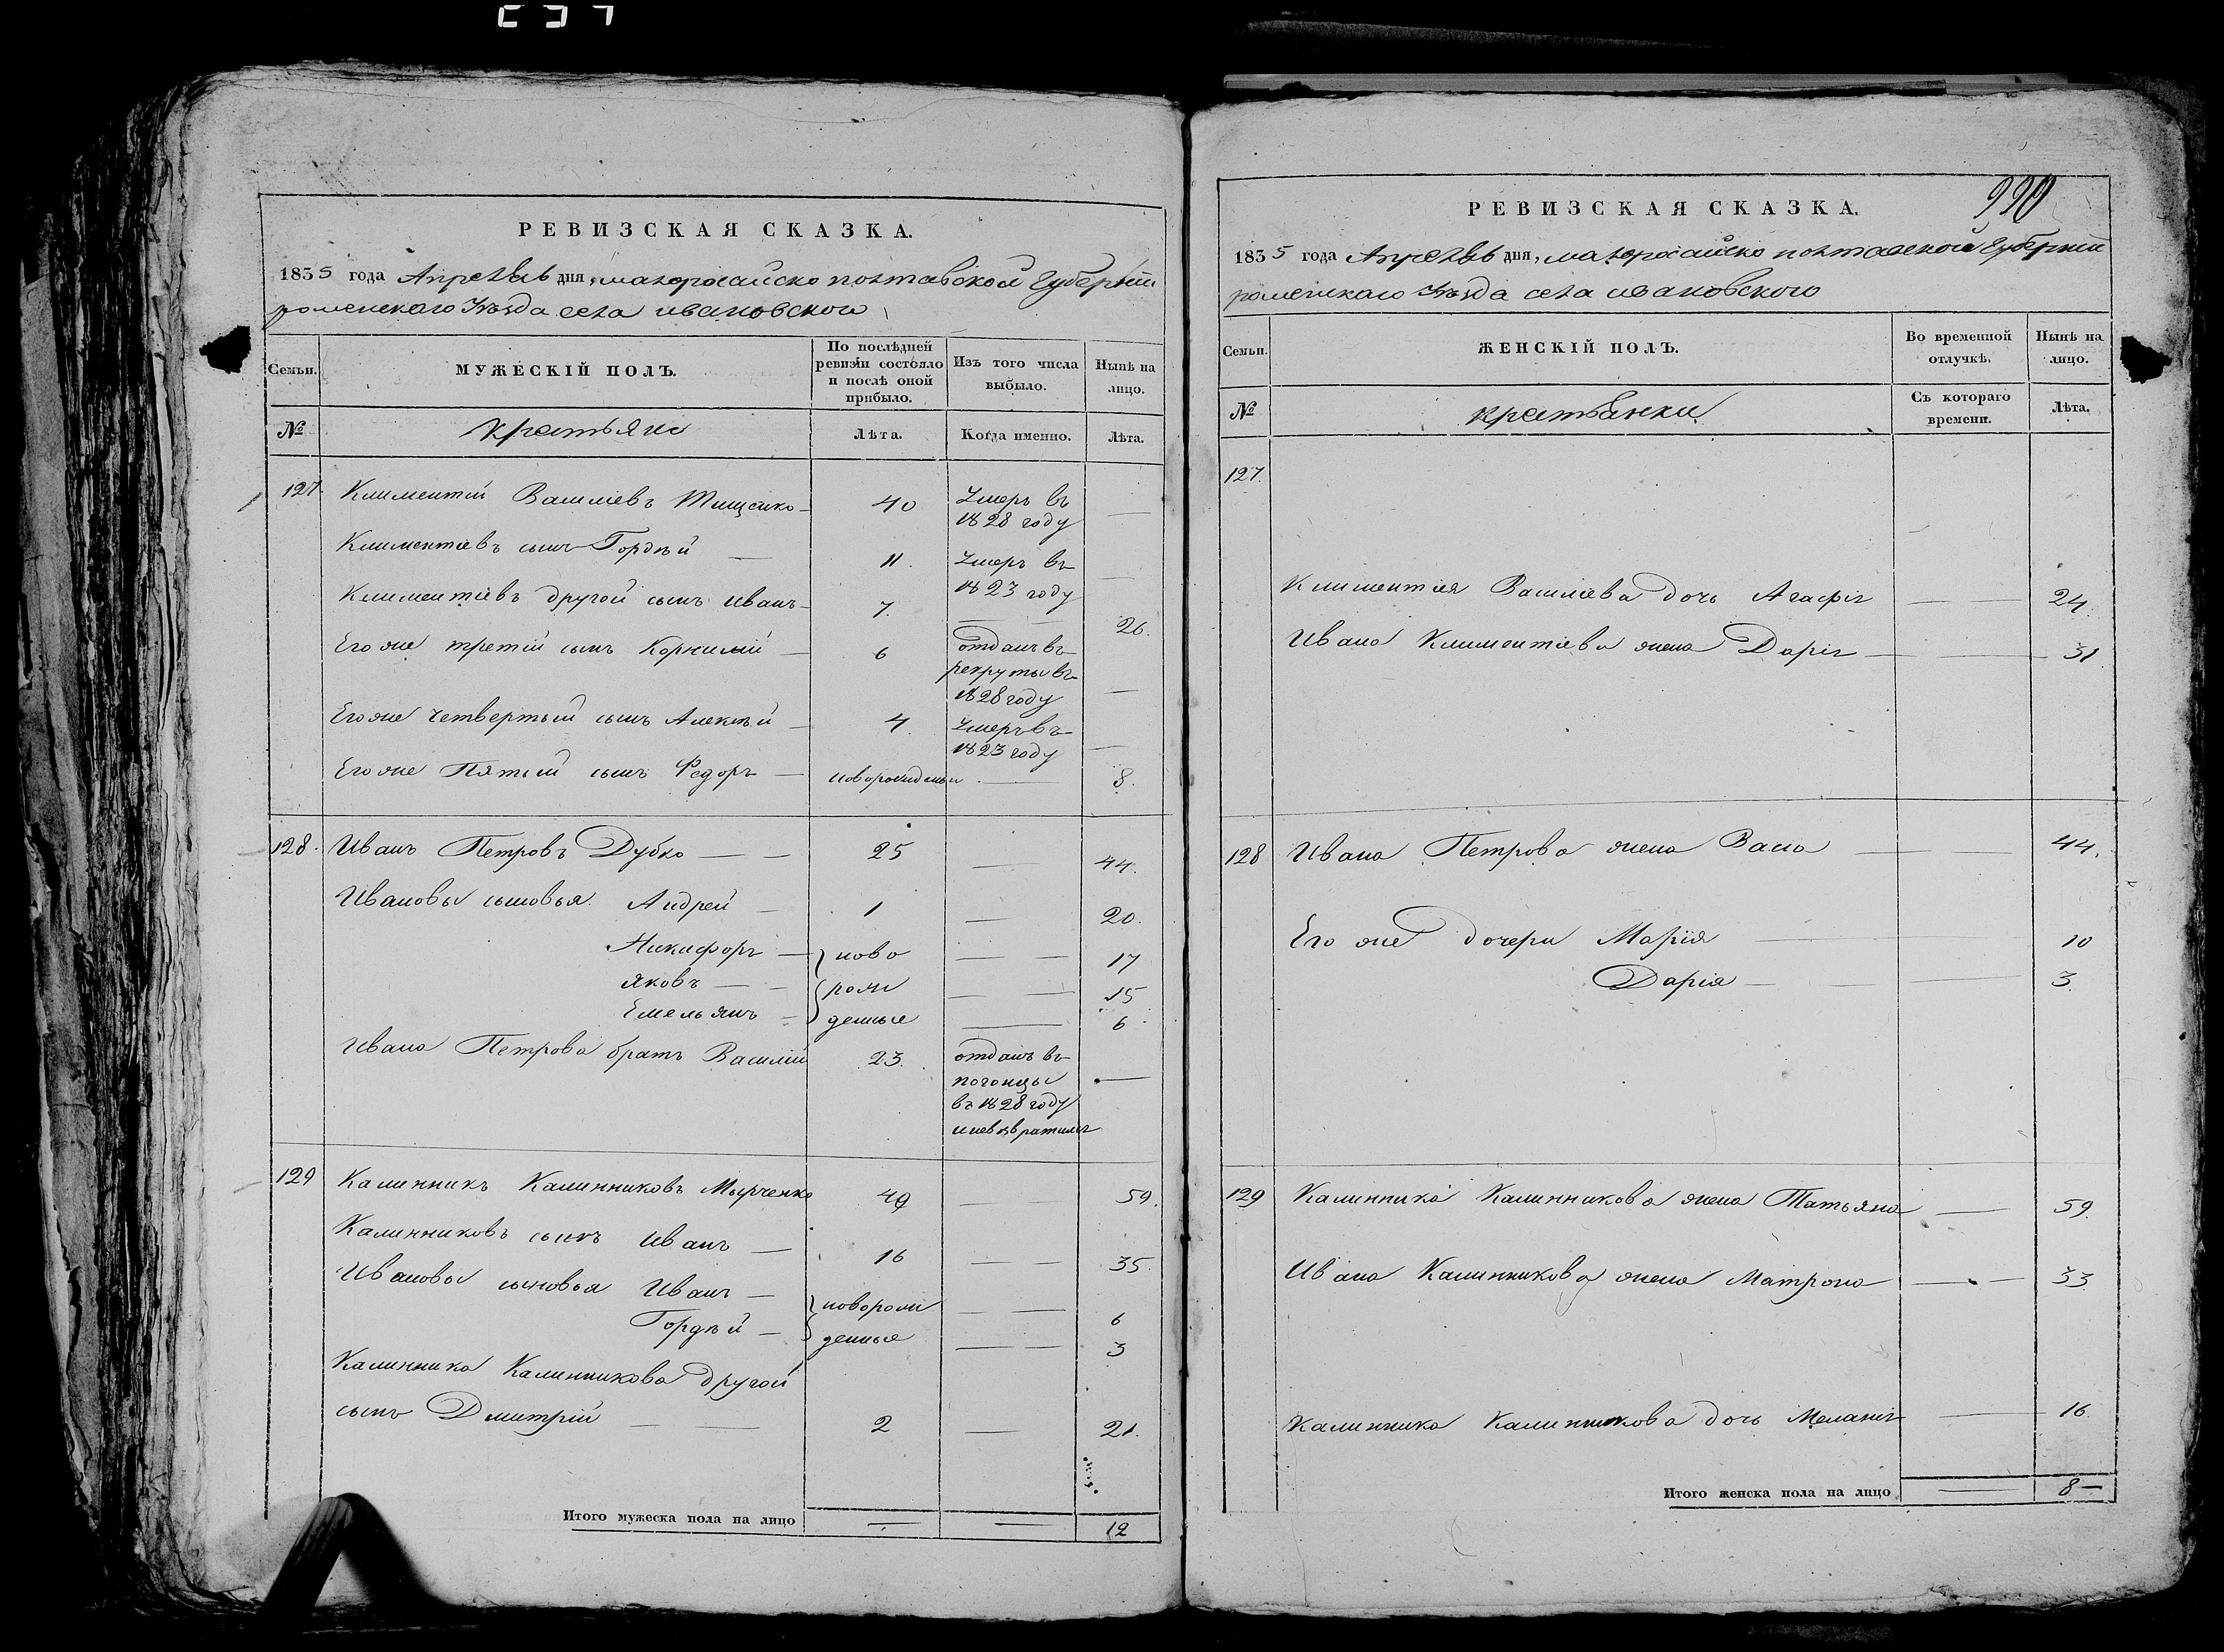 РЕВИЗСКАЯ СКАЗКА.
1835 года Апреля дня, малоросийско полтавской Губернии
роменскаго Уѣзда села ивановского
Семьи.
МУЖЕСКІЙ ПОЛЪ.
По послѣдней
ревизіи состояло
и послѣ оной
прибыло.
Изъ того числа
выбыло.
Нынѣ на
лицо.
№
крестьяне
Лѣта.
Когда именно.
Лѣта.
127. Климентій Василіевъ Тищенко 40 Умеръ въ
1828 году
Климентіевъ сынъ Гордѣй 11. Умеръ въ
1823 году
Климентіевъ другой сынъ Иванъ 7. 26.
Его же третій сынъ Корнилій 6 отданъ въ
рекруты въ
1828 году
Его же четвертый сынъ Алексѣй 4. Умеръ въ
1823 году
Его же Пятый сынъ Федоръ новорожденъ 8.
128. Иванъ Петровъ Дубко 25 44.
Ивановы сыновья. Андрей 1 20.
Никифоръ ново 17
Яковъ рож 15
Емельянъ денные 6
Ивана Петрова братъ Василій 23. отданъ въ
погонцы
въ 1828 году
и невозвратился
129 Калинникъ Калинниковъ Марченко 40 59.
Калинниковъ сынъ Иванъ 16 35.
Ивановы сыновья Иванъ новорож 6
Гордѣй денные 3
Калинника Калинникова другой
сынъ Дмитрій 2 21.
Итого мужеска пола на лицо 12
990
РЕВИЗСКАЯ СКАЗКА.
1835 года Апреля дня, малоросийско полтавской Губернии
роменскаго Уѣзда села ивановского
Семьи.
ЖЕНСКІЙ ПОЛЪ.
Во временной
отлучкѣ.
Нынѣ на
лицо.
№
крестьянки
Съ котораго
времени.
Лѣта.
127.
Климентія Василіева дочь Агафія 24.
Ивана Климентіева жена Дарія 31.
128 Ивана Петрова жена Васа 44.
Его же дочери Марія 10
Дарія 3.
129 Калинника Калинникова жена Татьяна 59.
Ивана Калинникова жена Матрона 33
Калинника Калинникова дочь Меланія 16.
Итого женска пола на лицо 8